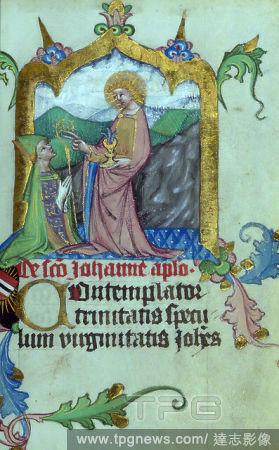 De sco Johanne aplo.
Contemplator
trinitatis specu
lum virginitatis Johes
TPG
www.tpgnews.com / 達志影像